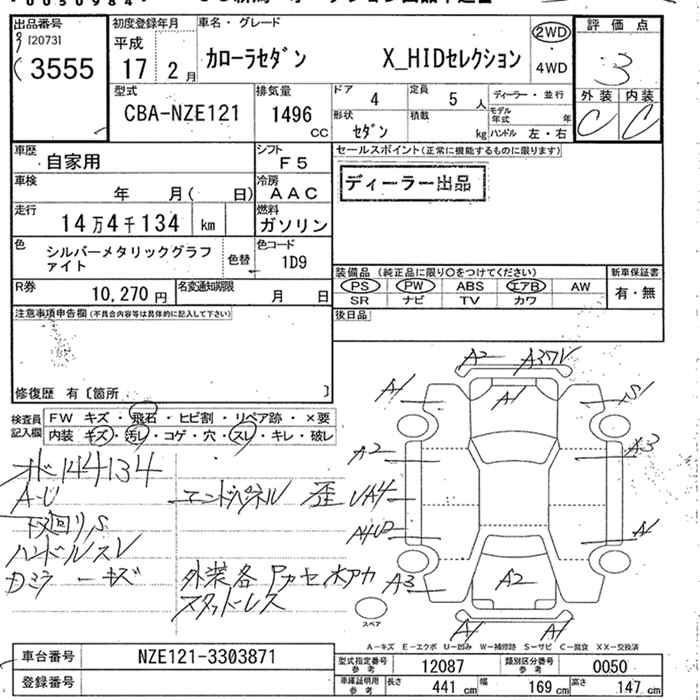 出品番号 初度登録年月 車名・グレード 評価点
[20731 平成 カローラセダン X_HIDセレクション 2WD 3
3555 17年 2月 4WD
型式 排気量 ドア 4 定員 5人 ディーラー・並行 外装 内装
CBA-NZE121 1496cc 形状 セダン 積載 kg モデル年式 年 ハンドル 左・右 C C
車歴 自家用 シフト F5 セールスポイント(正常に機能するものに限ります)
車検 年 月( 日) 冷房 AAC ディーラー出品
走行 14万4千134 km 燃料 ガソリン
色 シルバーメタリックグラファイト 色替 色コード 1D9
装備品(純正品に限り○をつけてください) 新車保証書
R券 10,270円 名変通知期限 月 日 PS PW ABS エアB AW 有・無
SR ナビ TV カワ
注意事項申告欄(不具合内容等は具体的に記入して下さい) 後日品
修復歴 有〔箇所 〕
検査員記入欄 FW キズ・飛石・ヒビ割・リペア跡・×要
内装 キズ・汚レ・コゲ・穴・スレ・キレ・破レ
A2 A3ワV
A1 A1 S1
A2 A3
UA4
A4U2 A1
A3 A2
A1 A1
オド144134
A-U エンドパネル 歪
下回りS
ハンドルスレ
Dミラーキズ 外装各
スタッドレス
スペア
A-キズ E-エクボ U-凹み W-補修跡 S-サビ C-腐食 XX-交換済
車台番号 NZE121-3303871 型式指定番号参考 12087 類別区分番号参考 0050
登録番号 車庫証明用参考 長さ 441cm 幅 169cm 高さ 147cm